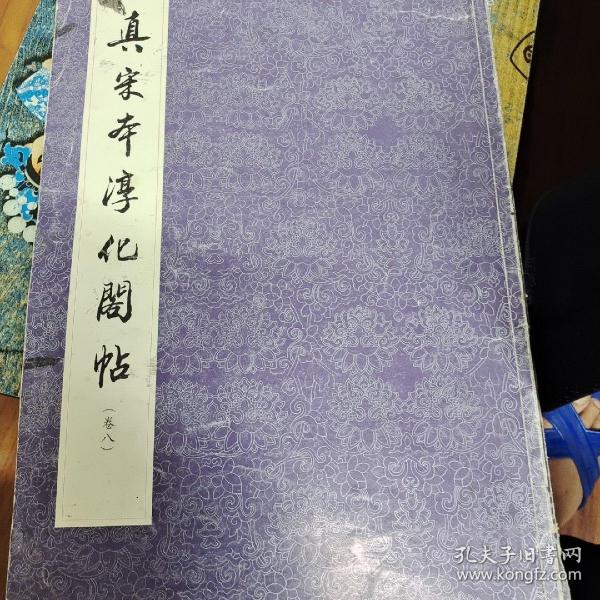 真宋本淳化閣帖
（卷八）
孔夫子旧书网
www.kongfz.com